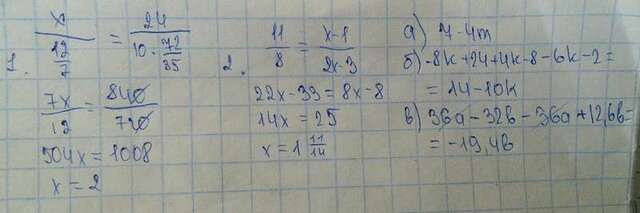 1. x / (12/7) = 24 / (10 · 72/35)
7x/12 = 840/720
504x = 1008
x = 2
2. 11/8 = (x-1)/(2x-3)
22x-33 = 8x-8
14x = 25
x = 1 11/14
а) 7-4m
б) -8k+24+4k-8-6k-2=
= 14-10k
в) 36a-32b-36a+12,6b=
= -19,4b